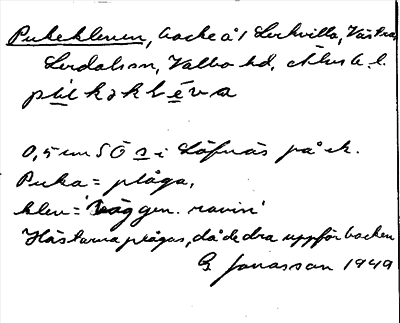 Pukekleven, backe å 1 Lerkvilla, Västra
Lerdalsn, Valbo hd, Älvsb. l.
pu̲kəkle̲va
0,5 km SÖ i Löfnäs på ek.
Puka = plåga,
klev = väg gen. ravin'
Hästarna plågas, då de dra uppför backen
G Jonasson 1949